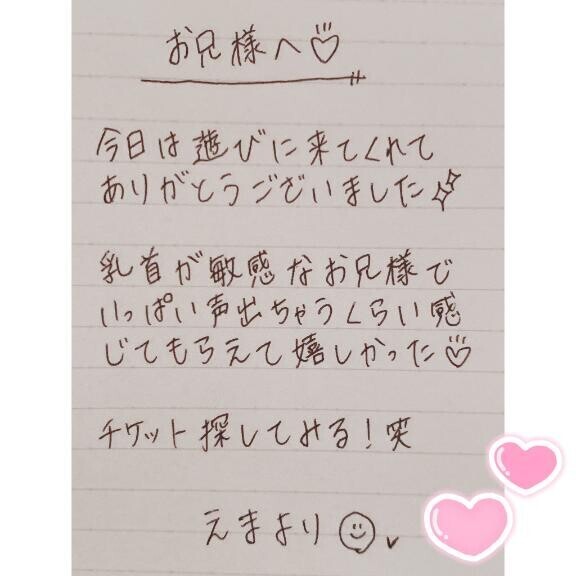 お兄様へ♡
今日は遊びに来てくれて
ありがとうございました✨
乳首が敏感なお兄様で
いっぱい声出ちゃうくらい感
じてもらえて嬉しかった♡
チケット探してみる！笑
えまより☺